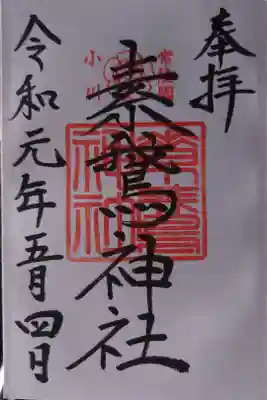 奉拝
常陸國
小川
素鵞神社
素鵞神社
令和元年五月四日